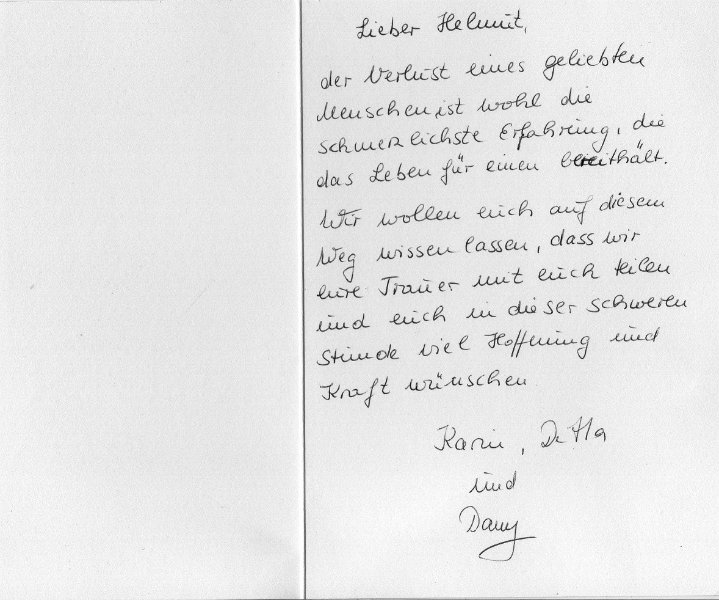 Lieber Helmut,
der Verlust eines geliebten
Menschen ist wohl die
schmerzlichste Erfahrung, die
das Leben für einen bereithält.
Wir wollen euch auf diesem
Weg wissen lassen, dass wir
eure Trauer mit euch teilen
und euch in dieser schweren
Stunde viel Hoffnung und
Kraft wünschen
Karin,
und
Dany